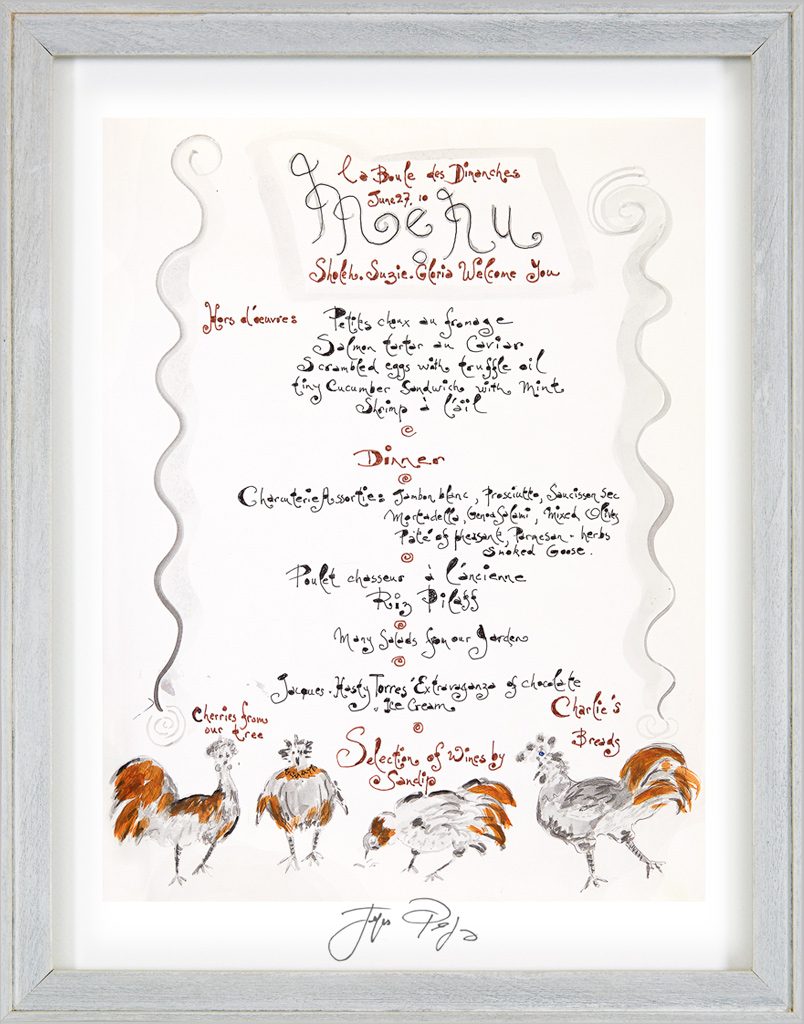 la Boule des Dimanches
June 27, 10
Menu
Sholeh. Suzie. Gloria Welcome You
Hors d'œuvres Petits choux au fromage
Salmon tartar au Caviar
Scrambled eggs with truffle oil
tiny Cucumber Sandwich with Mint
Shrimp à l'aïl
Dinner
Charcuterie Assortie: Jambon blanc, Prosciutto, Saucisson Sec
Mortadella, Genoa Salami, Mixed Olives
Pâté of pheasant, Parmesan - herbs
Smoked Goose.
Poulet chasseur à l'ancienne
Riz Pilaff
Many Salads from our Garden
Jacques. Hasty Torres' Extravaganza of chocolate
. Ice Cream
Cherries from
our tree
Charlie's
Breads
Selection of Wines by
Sandip